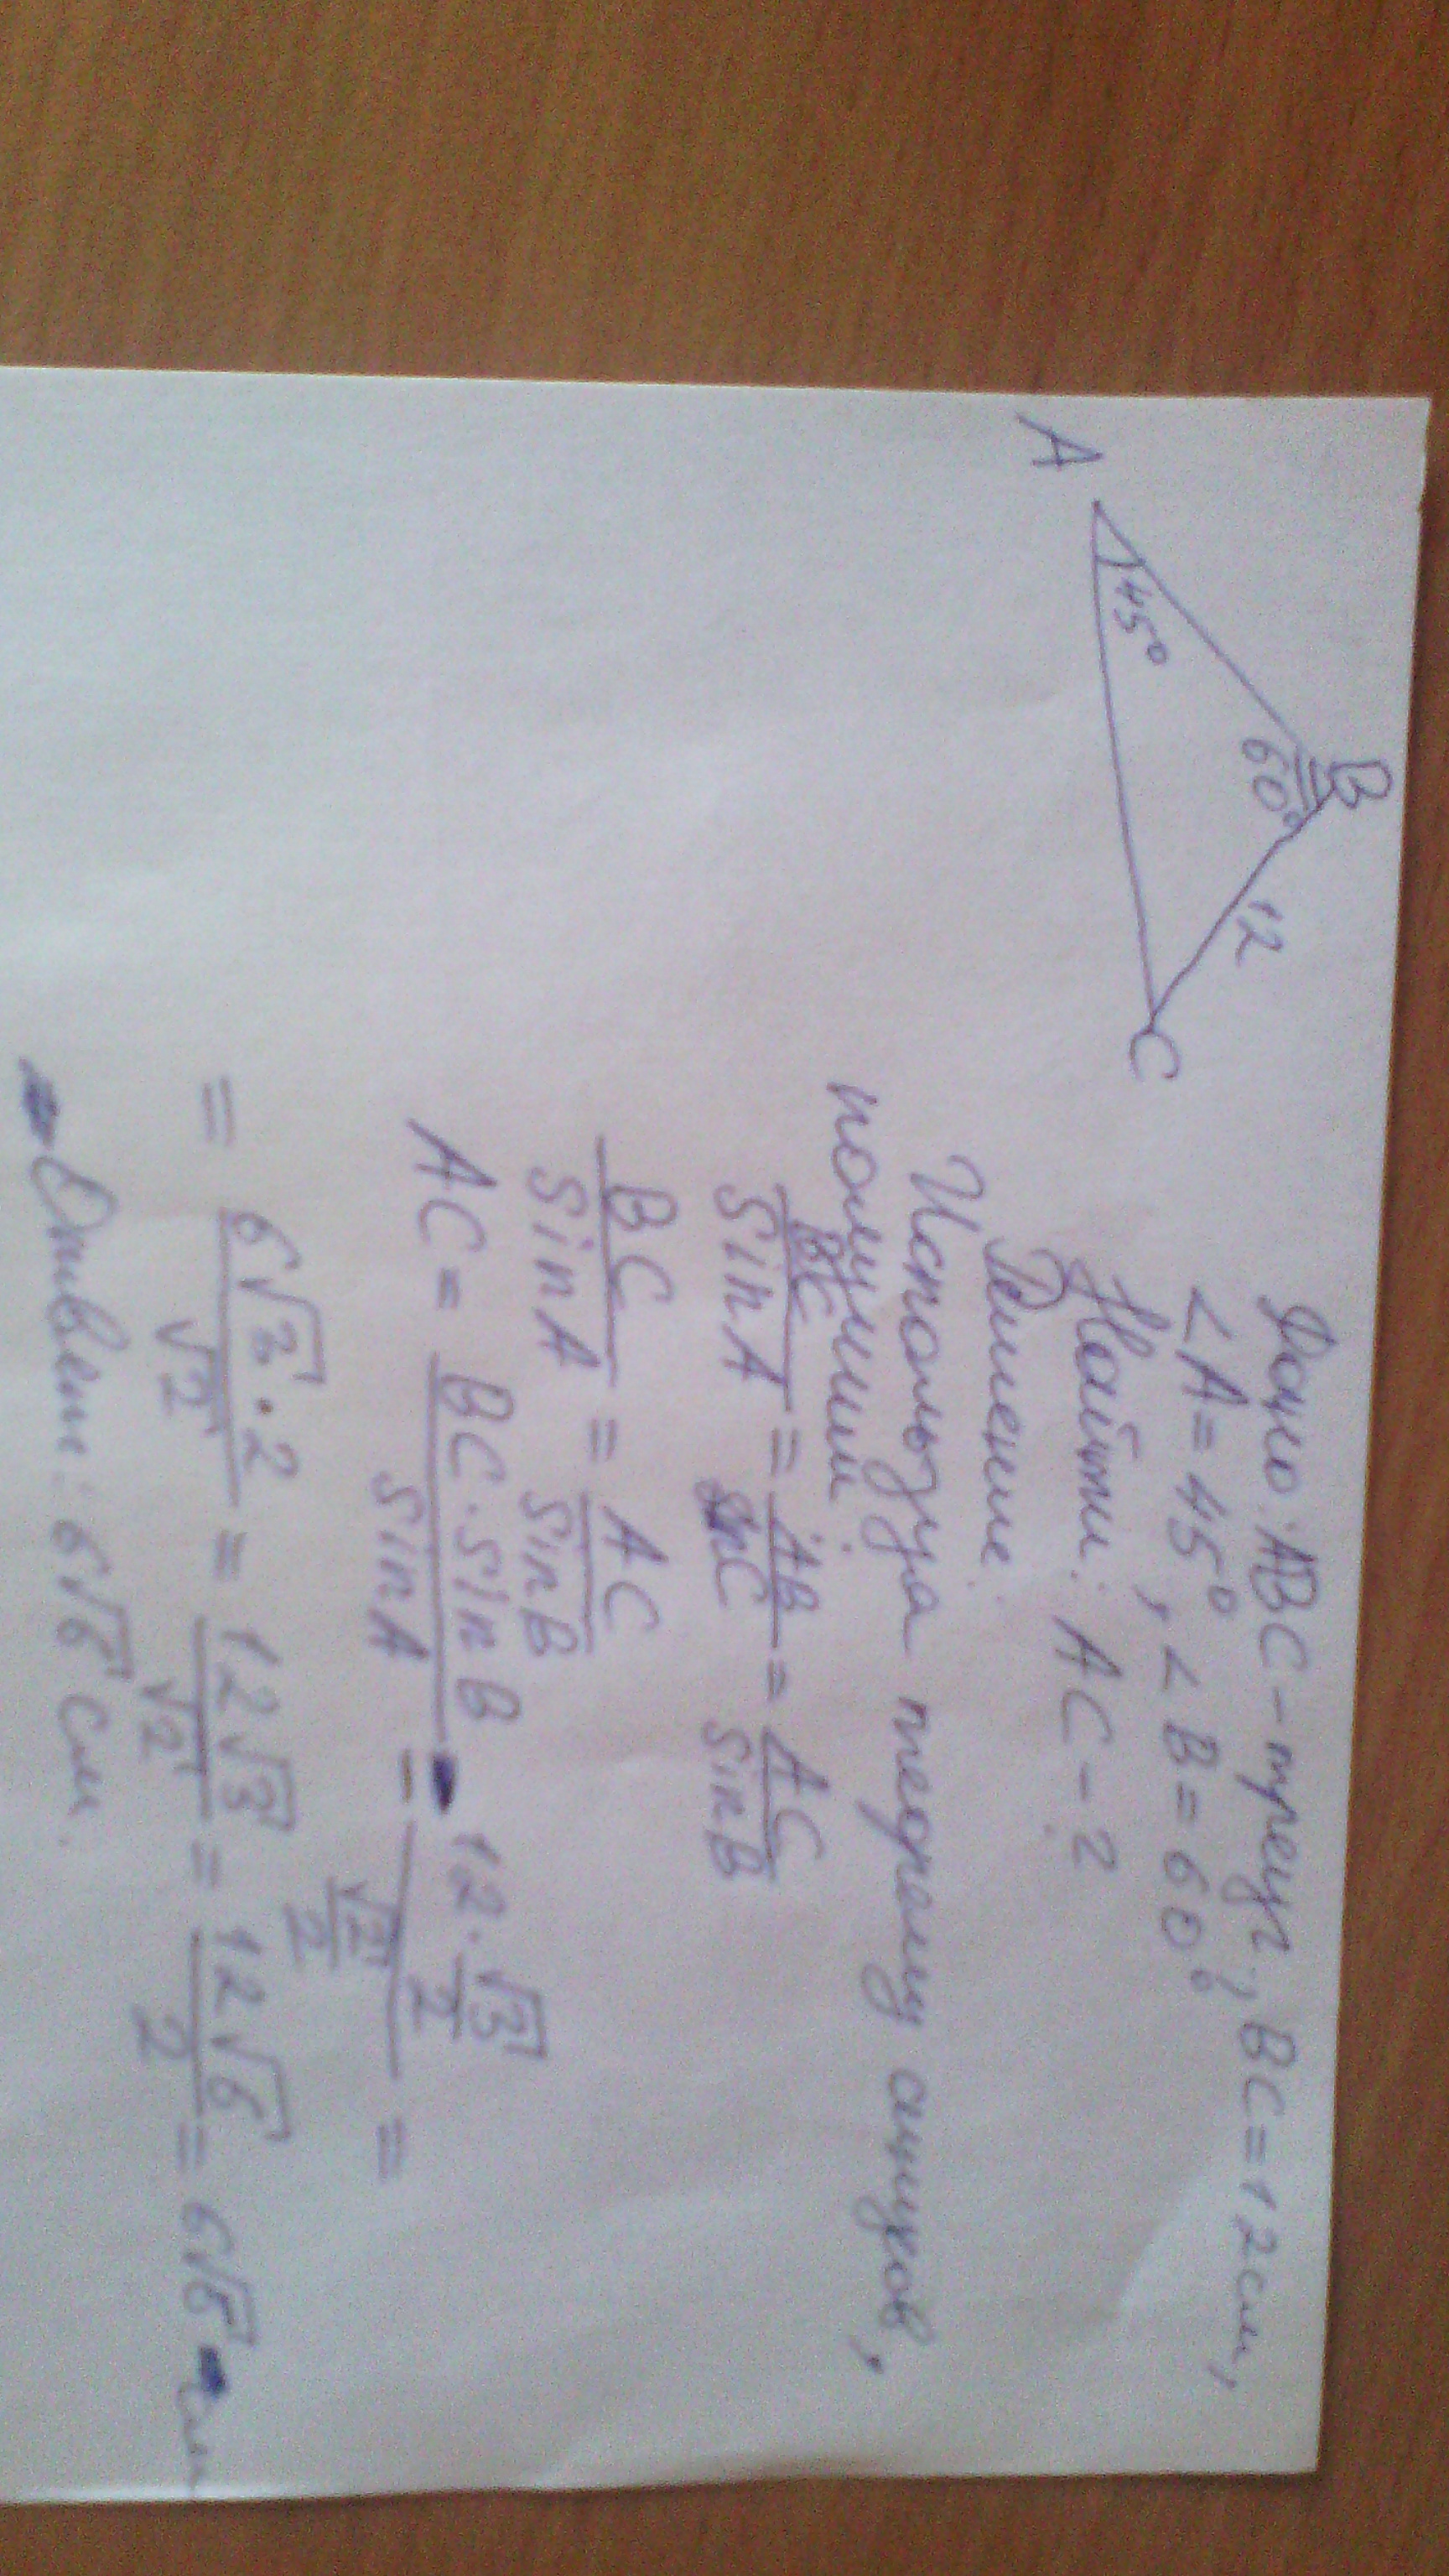 B
60°
12
A
45°
C
Дано: ABC - треуг, BC = 12 см,
∠A = 45°, ∠B = 60°.
Найти: AC - ?
Решение.
Используя теорему синусов,
получим
BC/sin A = AB/sin C = AC/sin B
BC/sin A = AC/sin B
AC = BC · sin B/sin A = 12 · √3/2 / √2/2 =
= 6√3 · 2/√2 = 12√3/√2 = 12√6/2 = 6√6 см
Ответ: 6√6 см.